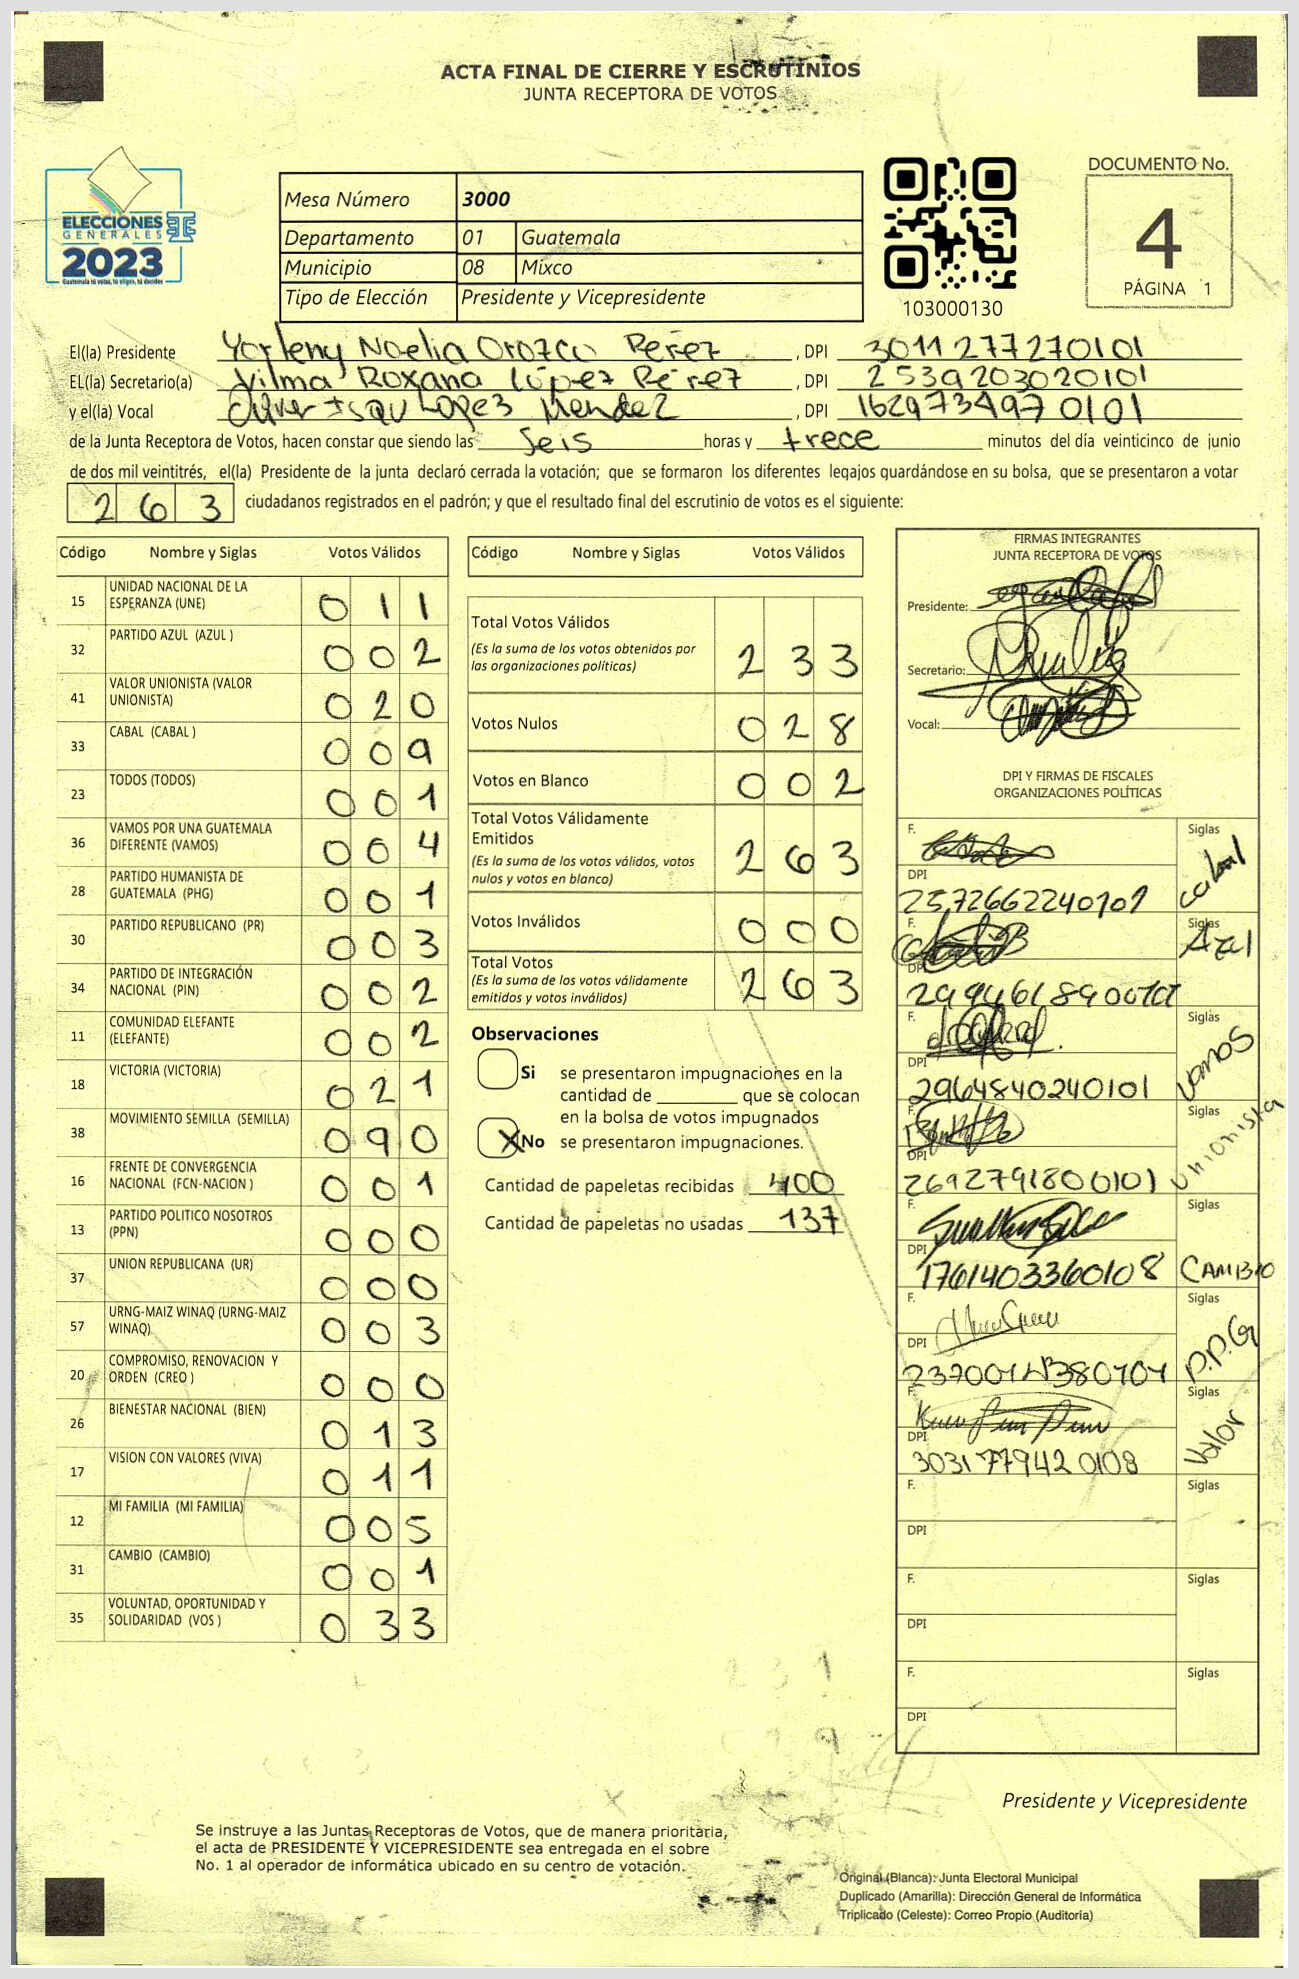 ACTA FINAL DE CIERRE Y ESCRUTINIOS
JUNTA RECEPTORA DE VOTOS
ELECCIONES
GENERALES
2023
Guatemala tú votas, tú eliges, tú decides
Mesa Número 3000
Departamento 01 Guatemala
Municipio 08 Mixco
Tipo de Elección Presidente y Vicepresidente
103000130
DOCUMENTO No.
4
PÁGINA 1
El(la) Presidente Yorleny Noelia Orozco Pérez , DPI 3011277270101
EL(la) Secretario(a) Vilma Roxana López Pérez , DPI 2539203020101
y el(la) Vocal Lopez Mendez , DPI 1629734970101
de la Junta Receptora de Votos, hacen constar que siendo las Seis horas y trece minutos del día veinticinco de junio
de dos mil veintitrés, el(la) Presidente de la junta declaró cerrada la votación; que se formaron los diferentes legajos guardándose en su bolsa, que se presentaron a votar
263 ciudadanos registrados en el padrón; y que el resultado final del escrutinio de votos es el siguiente:
Código Nombre y Siglas Votos Válidos
15 UNIDAD NACIONAL DE LA ESPERANZA (UNE) 011
32 PARTIDO AZUL (AZUL ) 002
41 VALOR UNIONISTA (VALOR UNIONISTA) 020
33 CABAL (CABAL ) 009
23 TODOS (TODOS) 001
36 VAMOS POR UNA GUATEMALA DIFERENTE (VAMOS) 004
28 PARTIDO HUMANISTA DE GUATEMALA (PHG) 001
30 PARTIDO REPUBLICANO (PR) 003
34 PARTIDO DE INTEGRACIÓN NACIONAL (PIN) 002
11 COMUNIDAD ELEFANTE (ELEFANTE) 002
18 VICTORIA (VICTORIA) 021
38 MOVIMIENTO SEMILLA (SEMILLA) 090
16 FRENTE DE CONVERGENCIA NACIONAL (FCN-NACION ) 001
13 PARTIDO POLITICO NOSOTROS (PPN) 000
37 UNION REPUBLICANA (UR) 000
57 URNG-MAIZ WINAQ (URNG-MAIZ WINAQ) 003
20 COMPROMISO, RENOVACION Y ORDEN (CREO ) 000
26 BIENESTAR NACIONAL (BIEN) 013
17 VISION CON VALORES (VIVA) 011
12 MI FAMILIA (MI FAMILIA) 005
31 CAMBIO (CAMBIO) 001
35 VOLUNTAD, OPORTUNIDAD Y SOLIDARIDAD (VOS ) 033
Código Nombre y Siglas Votos Válidos
Total Votos Válidos 233
(Es la suma de los votos obtenidos por
las organizaciones políticas)
Votos Nulos 028
Votos en Blanco 002
Total Votos Válidamente
Emitidos 263
(Es la suma de los votos válidos, votos
nulos y votos en blanco)
Votos Inválidos 000
Total Votos 263
(Es la suma de los votos válidamente
emitidos y votos inválidos)
Observaciones
Si se presentaron impugnaciones en la
cantidad de ________ que se colocan
en la bolsa de votos impugnados
X No se presentaron impugnaciones.
Cantidad de papeletas recibidas 400
Cantidad de papeletas no usadas 137
FIRMAS INTEGRANTES
JUNTA RECEPTORA DE VOTOS
Presidente:
Secretario:
Vocal:
DPI Y FIRMAS DE FISCALES
ORGANIZACIONES POLÍTICAS
F. Siglas cabal
DPI 2572662240101
F. Siglas Azul
DPI
F. Siglas Vamos
DPI 2964840240101
F. Siglas unionista
DPI 2692791800101
F. Siglas CAMBIO
DPI 1761403360108
F. Siglas P.P.G
DPI
F. Siglas Valor
DPI 3031779420108
F. Siglas
DPI
F. Siglas
DPI
F. Siglas
DPI
Presidente y Vicepresidente
Se instruye a las Juntas Receptoras de Votos, que de manera prioritaria,
el acta de PRESIDENTE Y VICEPRESIDENTE sea entregada en el sobre
No. 1 al operador de informática ubicado en su centro de votación.
Original (Blanca): Junta Electoral Municipal
Duplicado (Amarilla): Dirección General de Informática
Triplicado (Celeste): Correo Propio (Auditoría)